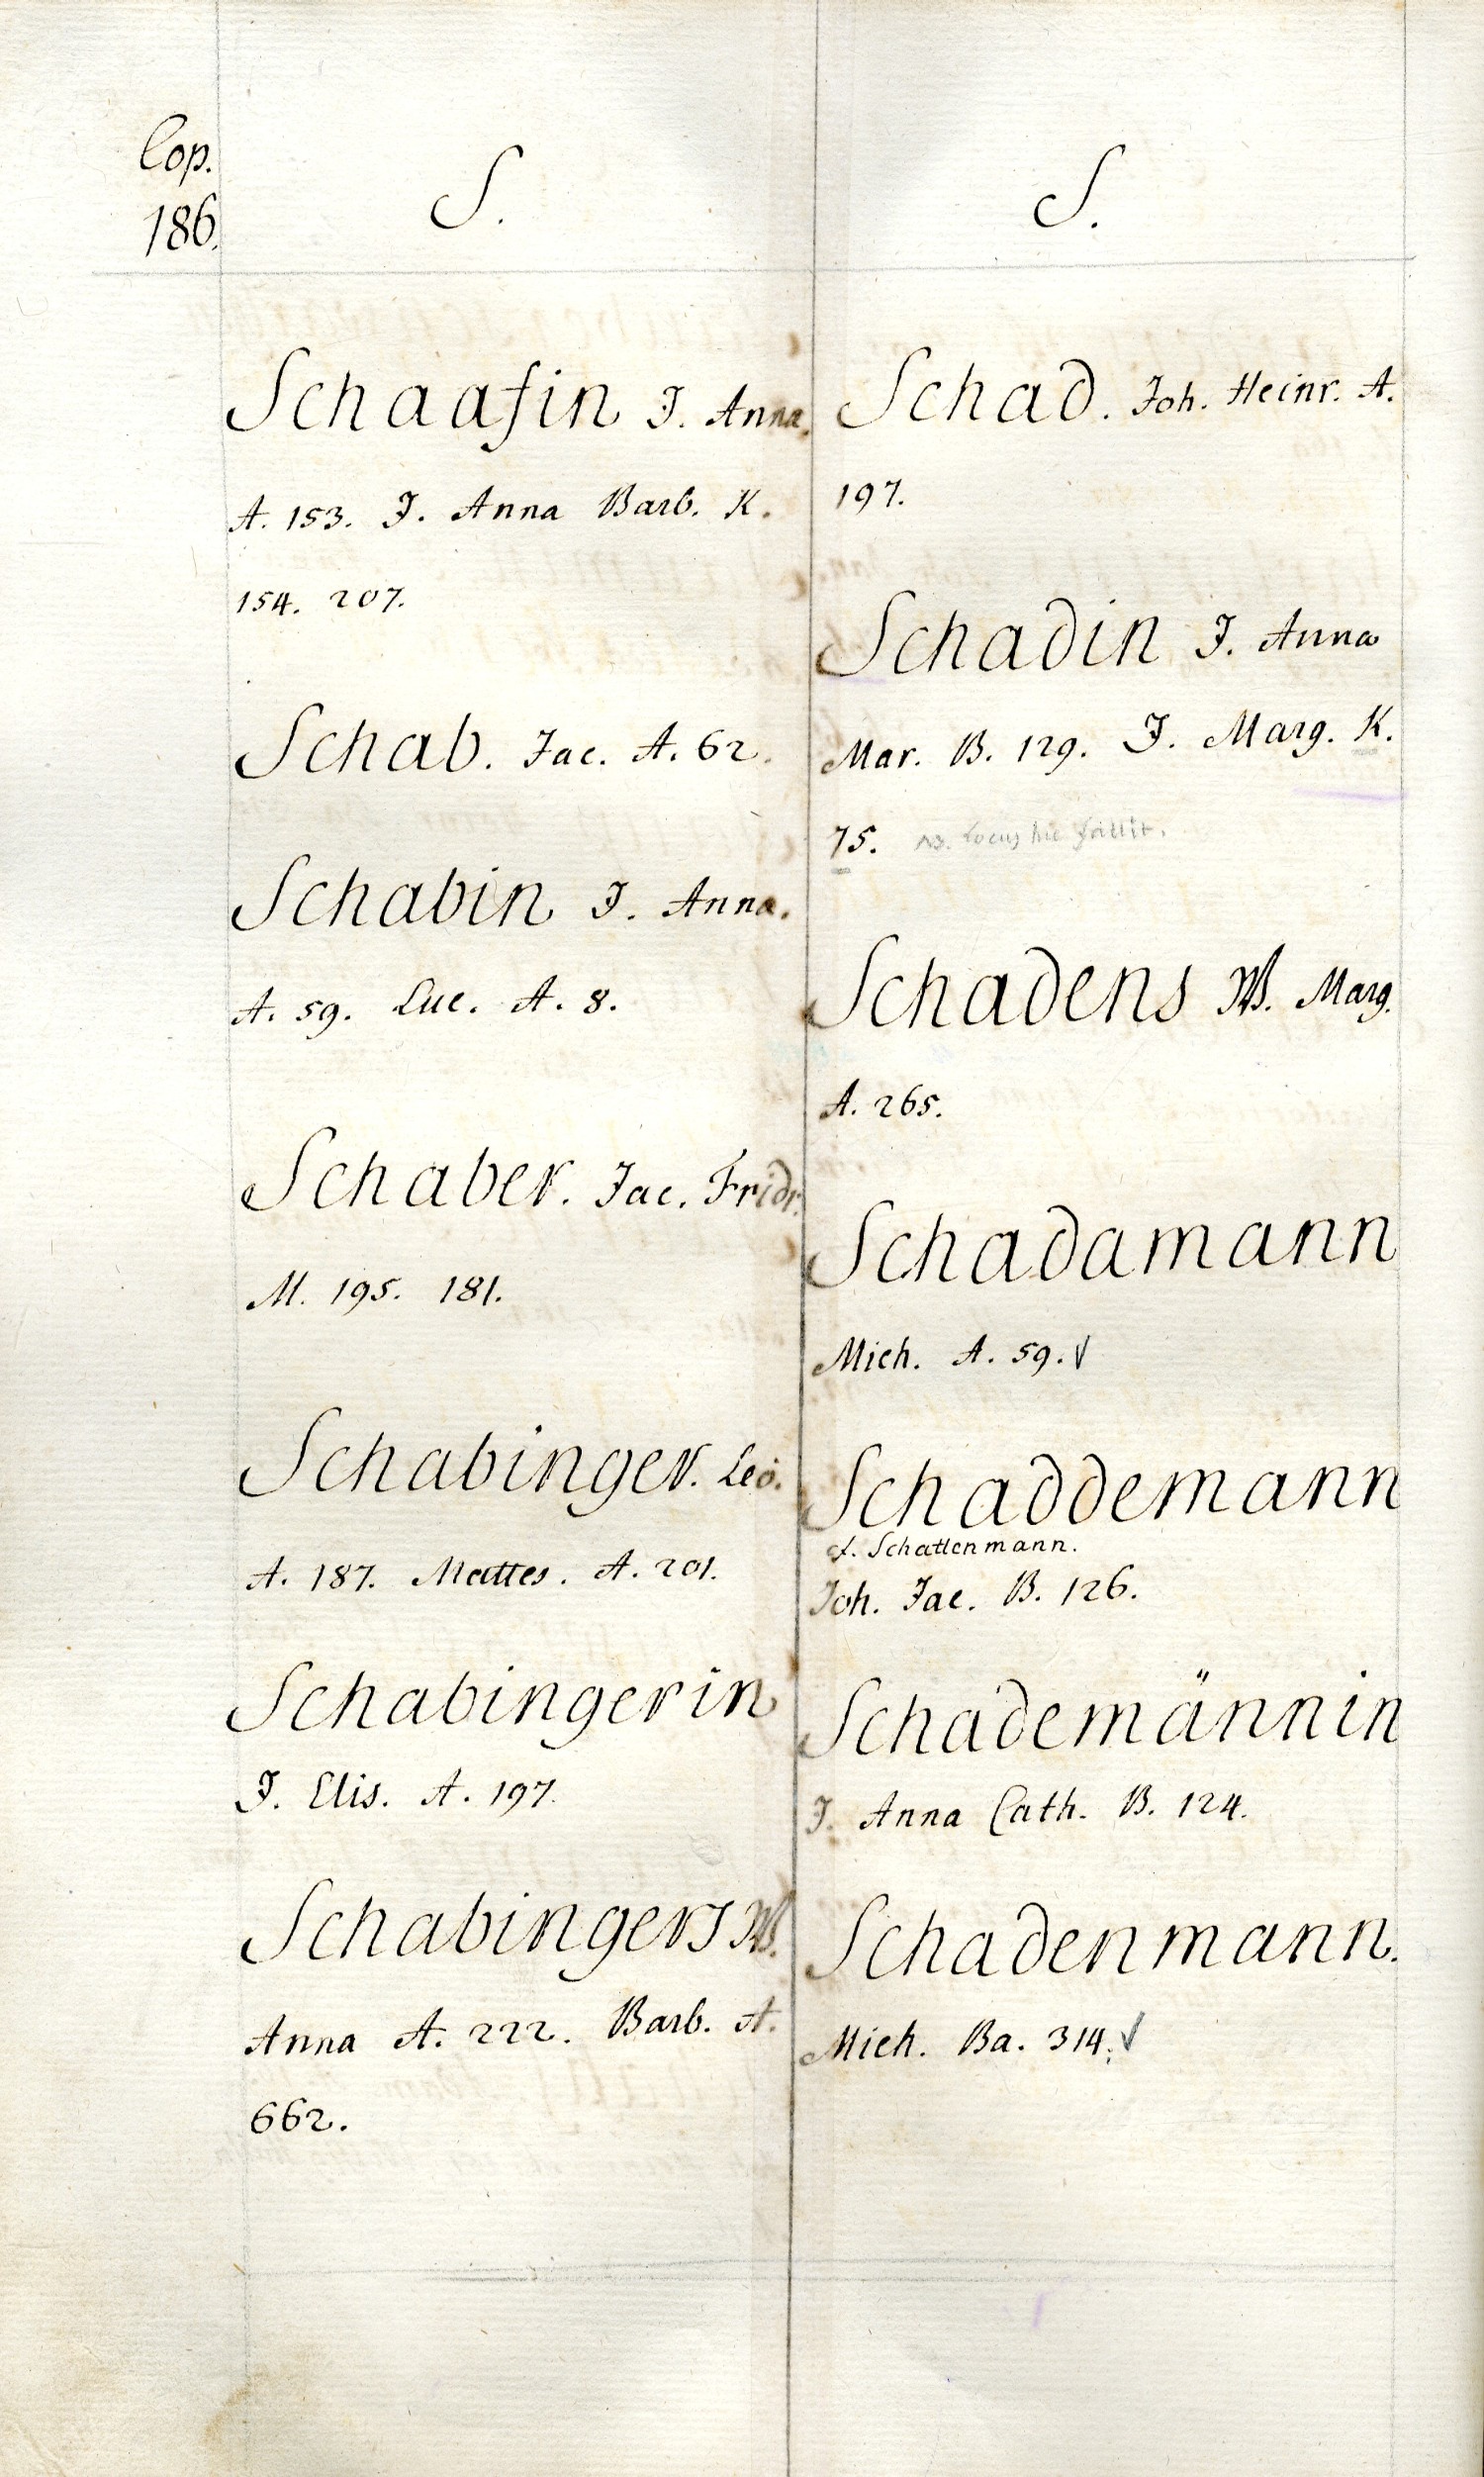 Cop.
186.
S.
Schaafin J. Anna.
A. 153. J. Anna Barb. K.
154. 207.
Schab. Jac. A. 62.
Schabin J. Anna.
A. 59. Luc. A. 8.
Schaber. Jac. Fridr.
M. 195. 181.
Schabinger. Leo.
A. 187. Mattes. A. 201.
Schabingerin
J. Elis. A. 197.
Schabingers W.
Anna A. 222. Barb. A.
662.
S.
Schad. Joh. Heinr. A.
197.
Schadin J. Anna
Mar. B. 129. J. Marg. K.
75. NB. Locus hic fallit.
Schadens W. Marg.
A. 265.
Schadamann
Mich. A. 59.
Schaddemann
cf. Schattenmann.
Joh. Jac. B. 126.
Schademännin
J. Anna Cath. B. 124.
Schadenmann.
Mich. Ba. 314.